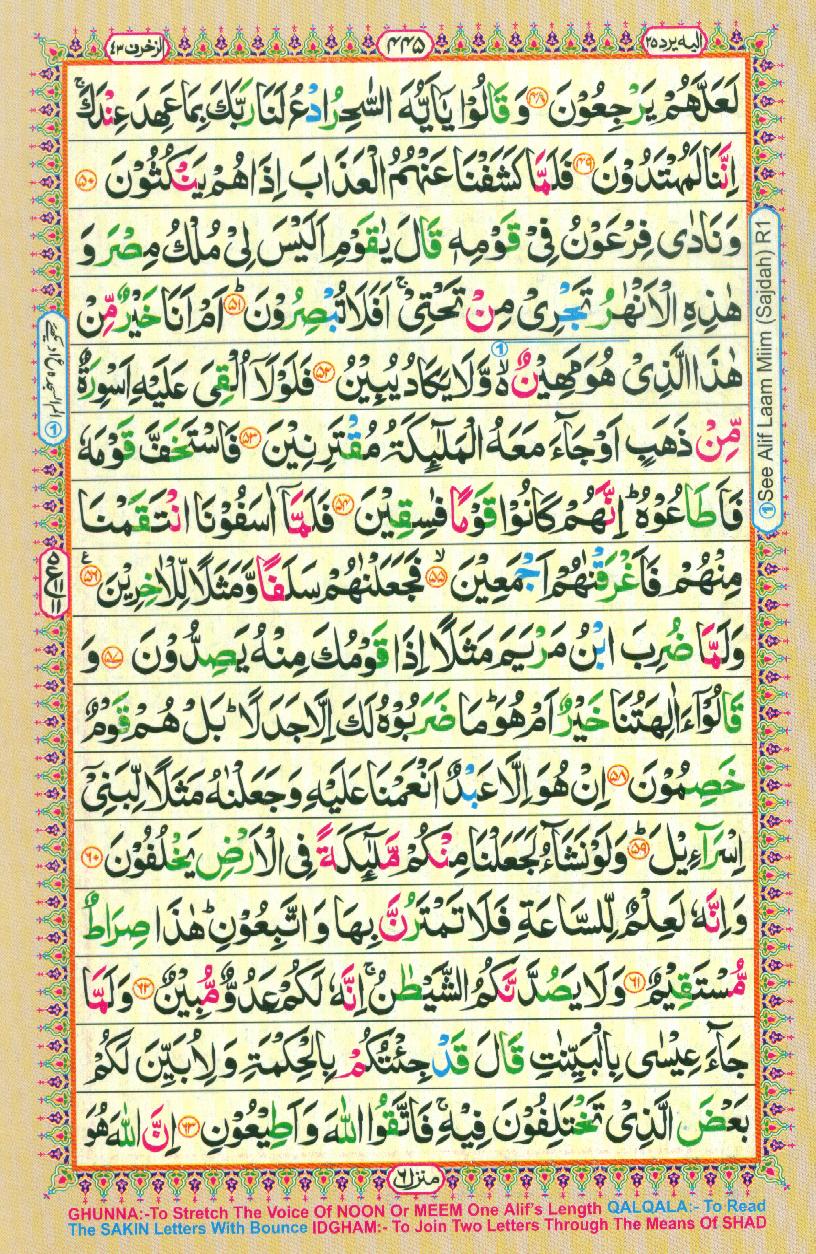 الیه یرد ۲۵
۴۴۵
الزخرف ۴۳
لَعَلَّهُمْ یَرْجِعُوْنَ ۝۴۸ وَ قَالُوْا یٰۤاَیُّهَ السّٰحِرُ ادْعُ لَنَا رَبَّكَ بِمَا عَهِدَ عِنْدَكَۚ
اِنَّنَا لَمُهْتَدُوْنَ ۝۴۹ فَلَمَّا كَشَفْنَا عَنْهُمُ الْعَذَابَ اِذَا هُمْ یَنْكُثُوْنَ ۝۵۰
وَ نَادٰی فِرْعَوْنُ فِیْ قَوْمِهٖ قَالَ یٰقَوْمِ اَلَیْسَ لِیْ مُلْكُ مِصْرَ وَ
هٰذِهِ الْاَنْهٰرُ تَجْرِیْ مِنْ تَحْتِیْۚ اَفَلَا تُبْصِرُوْنَؕ ۝۵۱ اَمْ اَنَا خَیْرٌ مِّنْ
هٰذَا الَّذِیْ هُوَ مَهِیْنٌ ۙ۬ وَّ لَا یَكَادُ یُبِیْنُ ۝۵۲ فَلَوْلَاۤ اُلْقِیَ عَلَیْهِ اَسْوِرَةٌ
مِّنْ ذَهَبٍ اَوْ جَآءَ مَعَهُ الْمَلٰٓىِٕكَةُ مُقْتَرِنِیْنَ ۝۵۳ فَاسْتَخَفَّ قَوْمَهٗ
فَاَطَاعُوْهُؕ اِنَّهُمْ كَانُوْا قَوْمًا فٰسِقِیْنَ ۝۵۴ فَلَمَّاۤ اٰسَفُوْنَا انْتَقَمْنَا
مِنْهُمْ فَاَغْرَقْنٰهُمْ اَجْمَعِیْنَۙ ۝۵۵ فَجَعَلْنٰهُمْ سَلَفًا وَّ مَثَلًا لِّلْاٰخِرِیْنَ۠ ۝۵۶
وَ لَمَّا ضُرِبَ ابْنُ مَرْیَمَ مَثَلًا اِذَا قَوْمُكَ مِنْهُ یَصِدُّوْنَ ۝۵۷ وَ
قَالُوْۤا ءَاٰلِهَتُنَا خَیْرٌ اَمْ هُوَؕ مَا ضَرَبُوْهُ لَكَ اِلَّا جَدَلًاؕ بَلْ هُمْ قَوْمٌ
خَصِمُوْنَ ۝۵۸ اِنْ هُوَ اِلَّا عَبْدٌ اَنْعَمْنَا عَلَیْهِ وَ جَعَلْنٰهُ مَثَلًا لِّبَنِیْۤ
اِسْرَآءِیْلَؕ ۝۵۹ وَ لَوْ نَشَآءُ لَجَعَلْنَا مِنْكُمْ مَّلٰٓىِٕكَةً فِی الْاَرْضِ یَخْلُفُوْنَ ۝۶۰
وَ اِنَّهٗ لَعِلْمٌ لِّلسَّاعَةِ فَلَا تَمْتَرُنَّ بِهَا وَ اتَّبِعُوْنِؕ هٰذَا صِرَاطٌ
مُّسْتَقِیْمٌ ۝۶۱ وَ لَا یَصُدَّنَّكُمُ الشَّیْطٰنُۚ اِنَّهٗ لَكُمْ عَدُوٌّ مُّبِیْنٌ ۝۶۲ وَ لَمَّا
جَآءَ عِیْسٰی بِالْبَیِّنٰتِ قَالَ قَدْ جِئْتُكُمْ بِالْحِكْمَةِ وَ لِاُبَیِّنَ لَكُمْ
بَعْضَ الَّذِیْ تَخْتَلِفُوْنَ فِیْهِۚ فَاتَّقُوا اللّٰهَ وَ اَطِیْعُوْنِ ۝۶۳ اِنَّ اللّٰهَ هُوَ
① See Alif Laam Miim (Sajdah) R1
منزل ۶
GHUNNA:-To Stretch The Voice Of NOON Or MEEM One Alif's Length QALQALA:- To Read
The SAKIN Letters With Bounce IDGHAM:- To Join Two Letters Through The Means Of SHAD